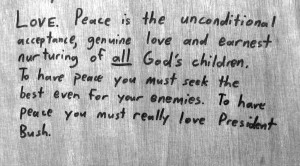 Love. Peace is the unconditional
acceptance, genuine love and earnest
nurturing of all God's children.
To have peace you must seek the
best even for your enemies. To have
peace you must really love President
Bush.